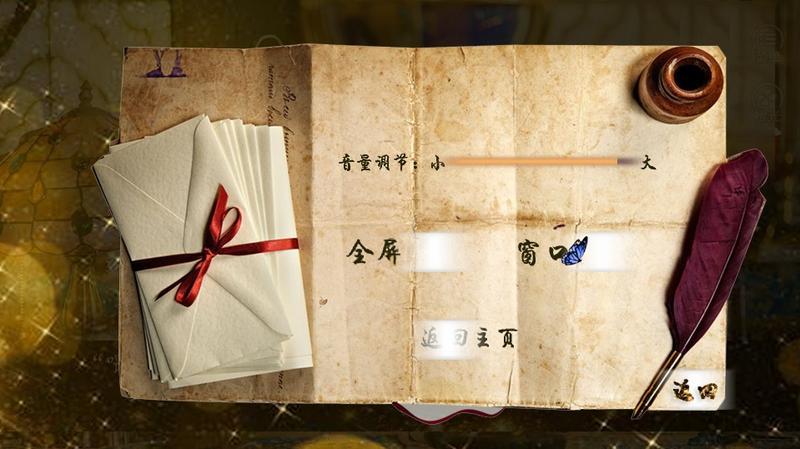 音量调节：小 大
全屏 窗口
返回主页
返回